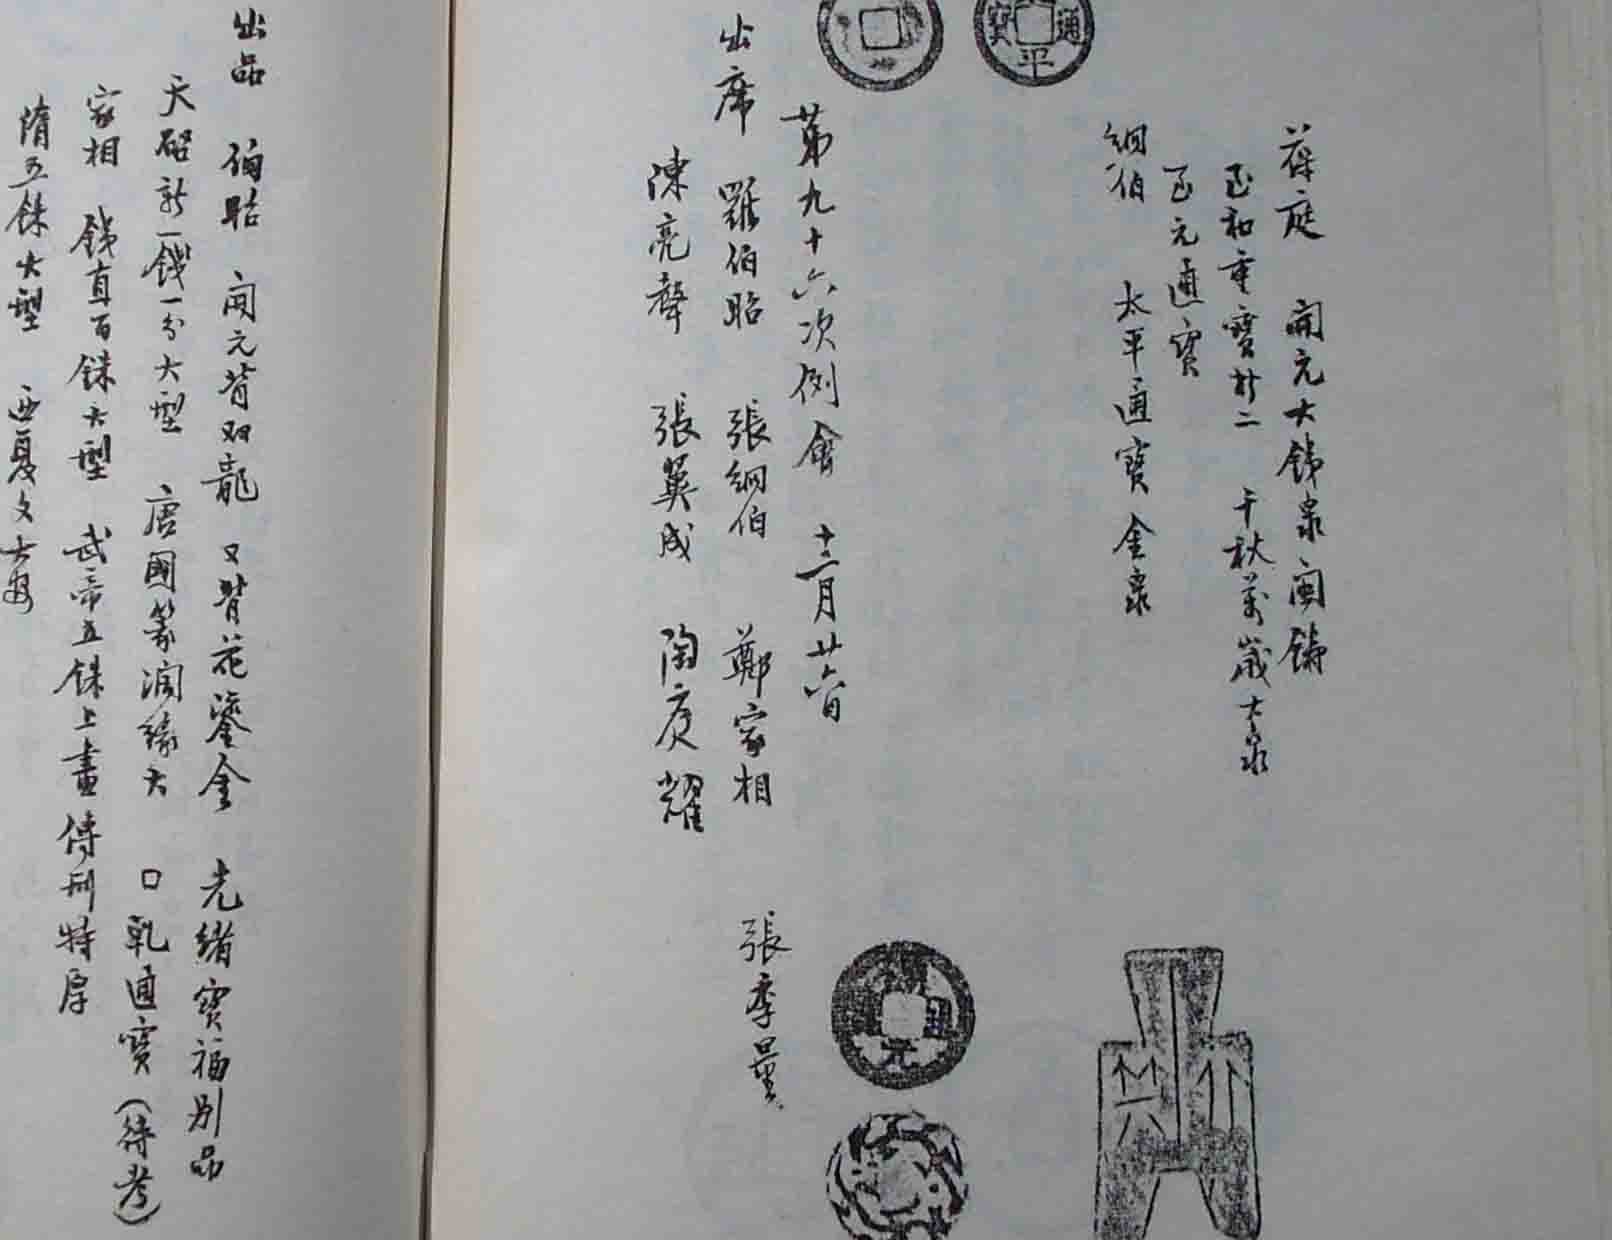 葆庭　開元大錢泉閩鑄
至和重寶折二　千秋萬歲大泉
至元通寶
絅伯　太平通寶金泉
通
寶
平
第九十六次例會　十二月廿六日
出席　羅伯昭　張絅伯　鄭家相　張季量
陳亮聲　張英成　陶庭耀
元
通
出品　伯昭　開元背双龍　又背花鎏金　光緒寶福別品
天啟新一錢一分大型　唐國篆濶緣大　口乾通寶（待考）
家相　錢直百銖大型　武帝五銖上畫傳形特厚
隋五銖大型　西夏文大安